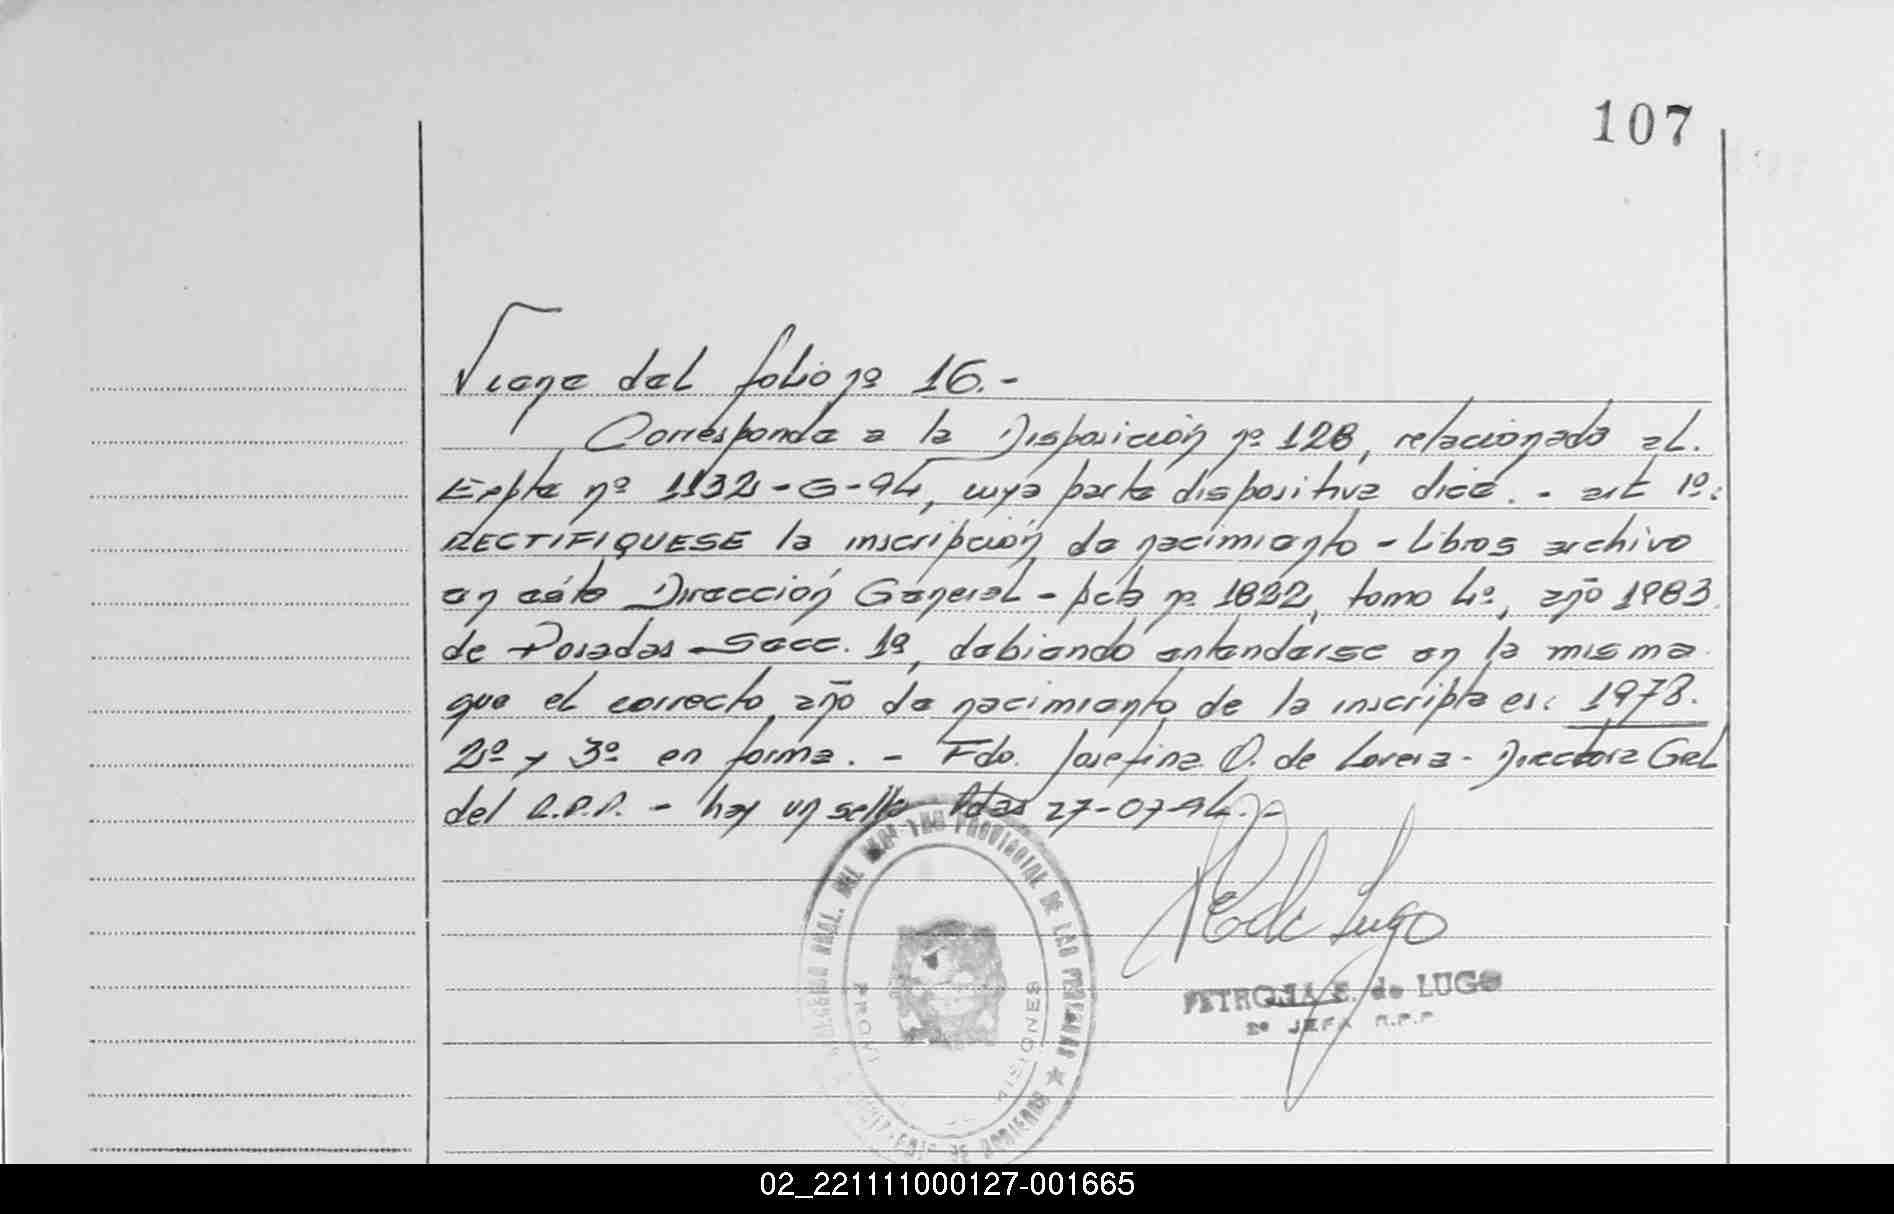 107
Viene del folio nº 16.-
Corresponde a la Disposición nº 128, relacionado al.
Expte nº 1132-G-94, cuya parte dispositiva dice. - art 1º:
RECTIFIQUESE la inscripción de nacimiento - Libros archivo
en ésta Dirección General - Acta nº 1822, tomo 4º, año 1983
de Posadas - Secc. 1ª, debiendo entenderse en la misma
que el correcto año de nacimiento de la inscripta es: 1978.
2º y 3º en forma. - Fdo. Josefina O. de Lovera - Directora Gral
del R.P.P. - hay un sello Pdas 27-07-94.-
PROVINCIAL DE LAS PERSONAS
MISIONES
DE GOBIERNO
de Lugo
PETRONA E. de LUGO
2º JEFA R.P.P.
02_221111000127-001665